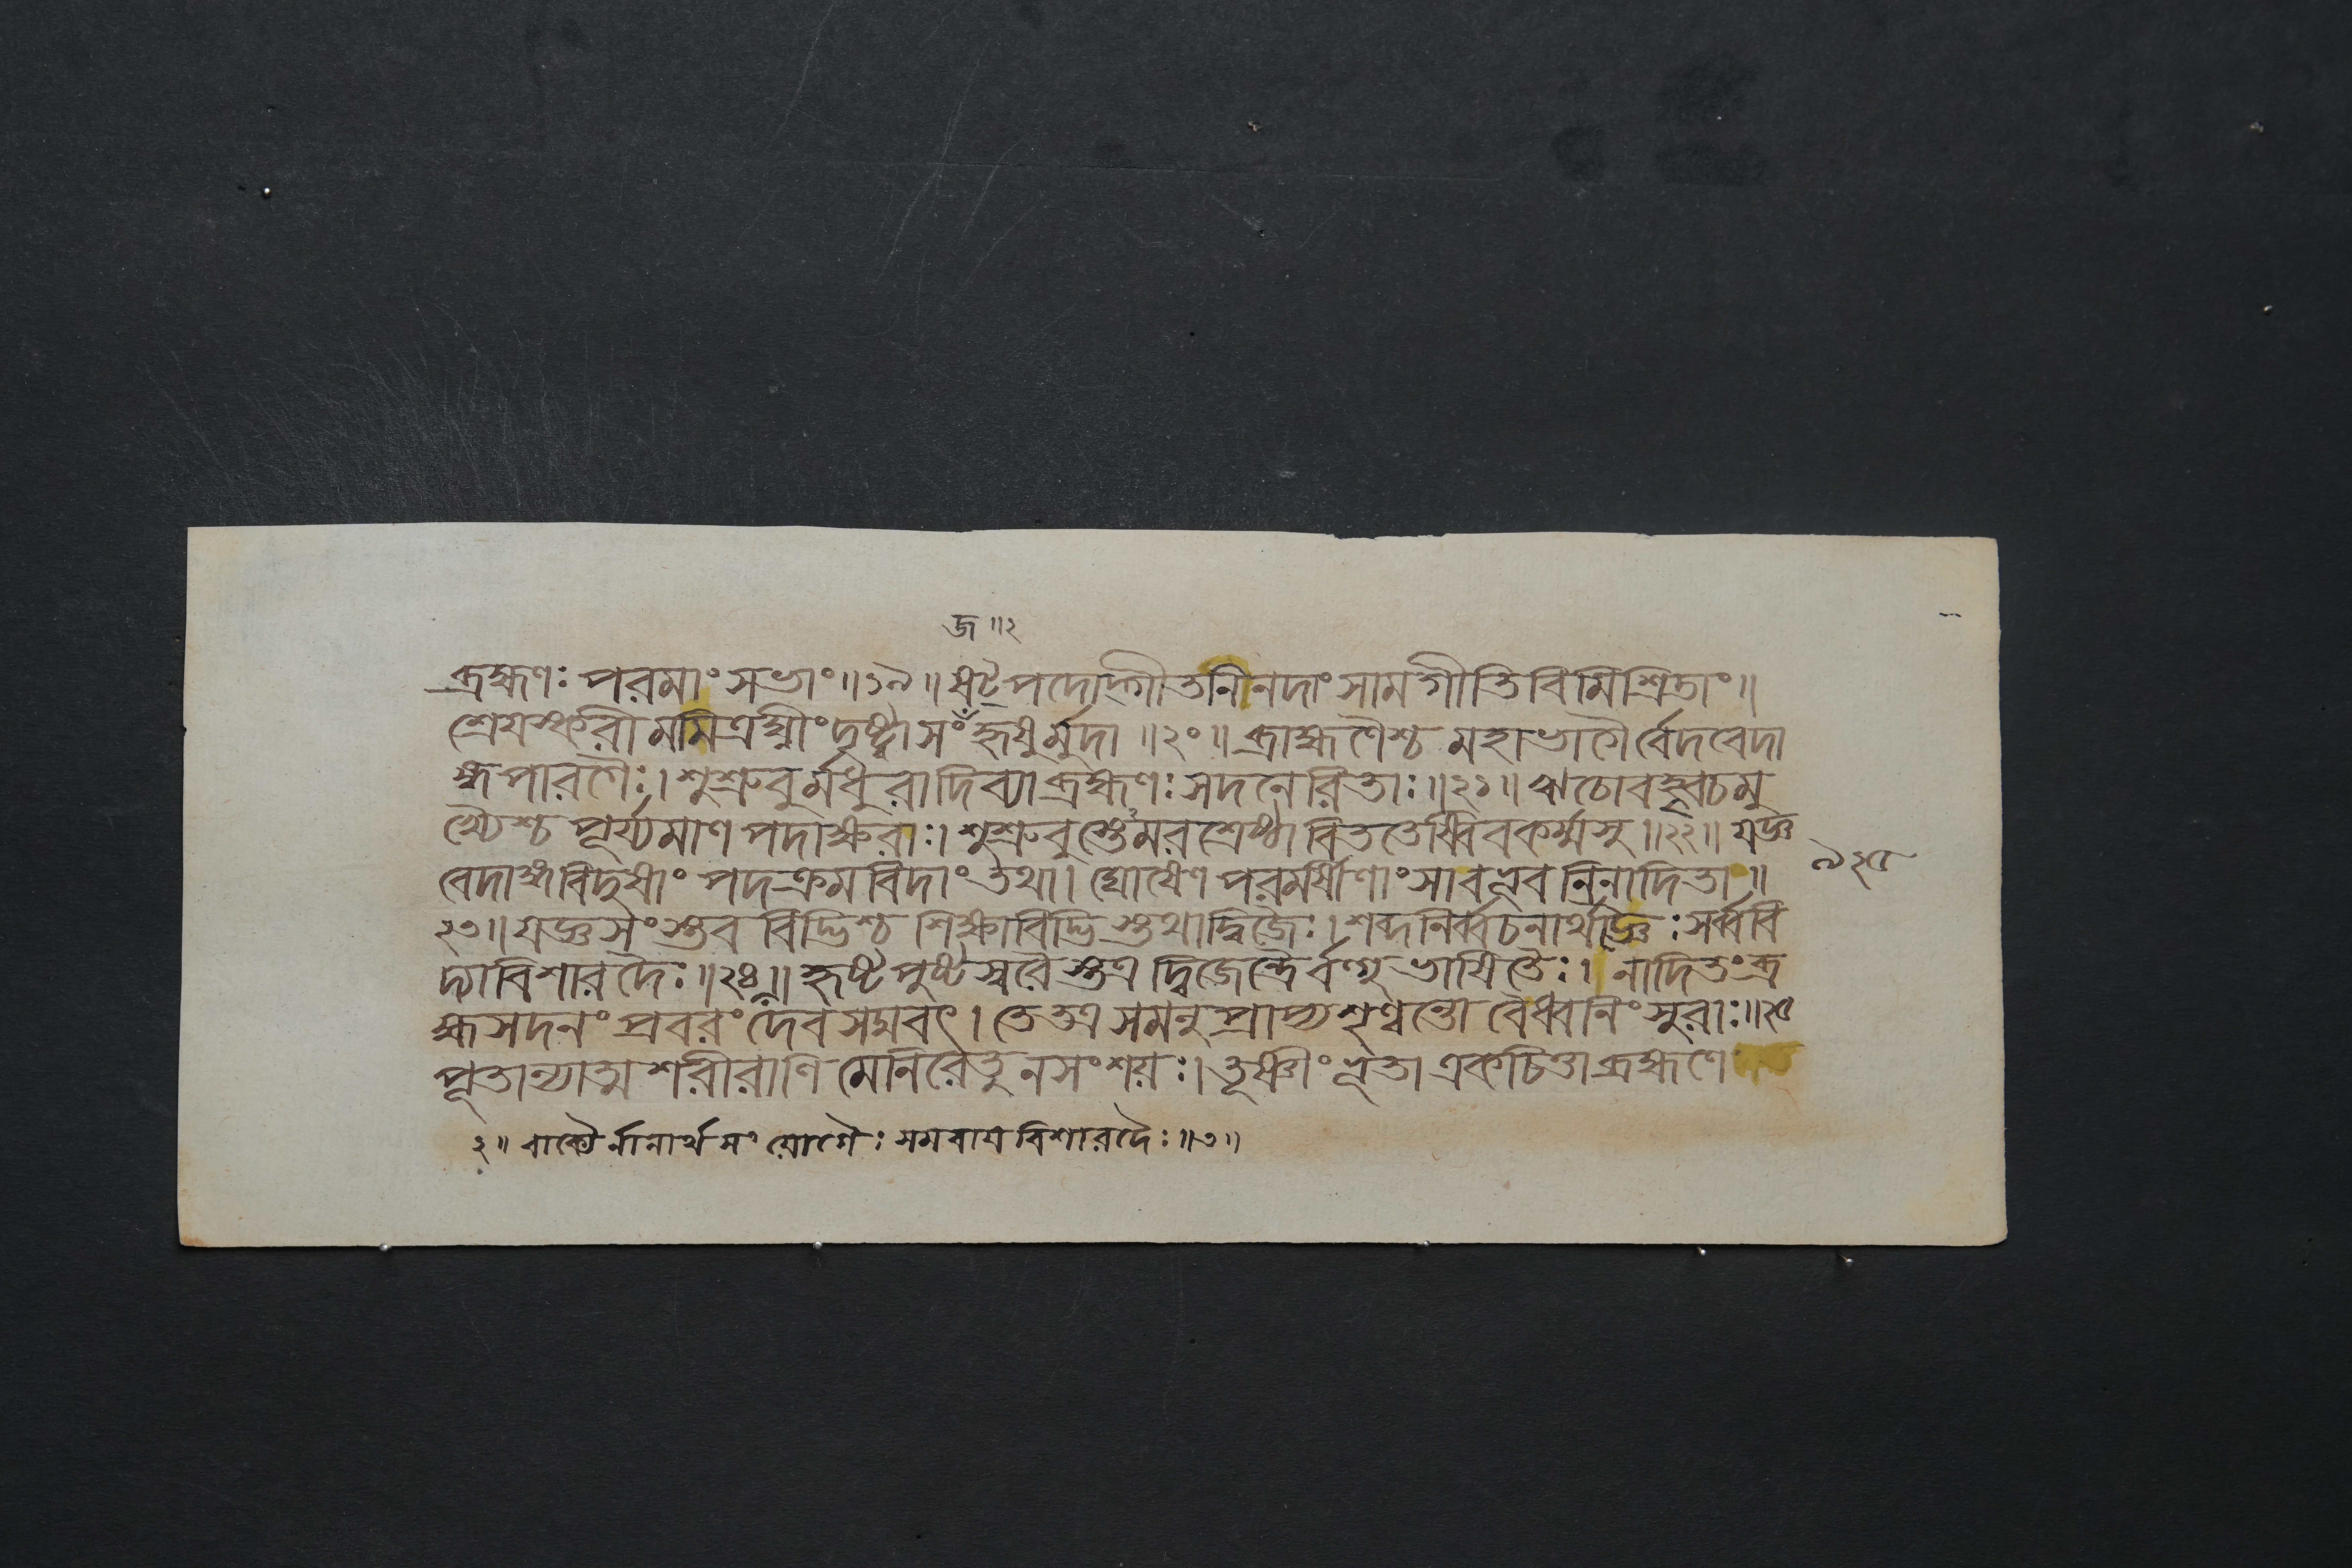 জ ॥ ২
ব্রহ্মণঃ পরমাং সভাং ॥ ১৯ ॥ ষট্পদোদ্গীতনিনদাং সামগীতিবিমিশ্রিতাং ॥
শ্রেয়স্করীমমিত্রঘ্নীং দৃষ্ট্বা সংহৃষুর্মুদা ॥ ২০ ॥ ব্রাহ্মণৈশ্চ মহাভাগৈর্বেদবেদা
ঙ্গপারগৈঃ । শুশ্রুবুর্মধুরা দিব্যা ব্রহ্মণঃ সদনেরিতাঃ ॥ ২১ ॥ ঋচো বহ্বৃচমু
খ্যৈশ্চ পূর্য্যমাণপদাক্ষরাঃ । শুশ্রুবুস্তেঽমরশ্রেষ্ঠা বিততেষ্বিবকর্ম্মসু ॥ ২২ ॥ যজ্ঞ
বেদাঙ্গবিদুষাং পদক্রমবিদাং তথা । ঘোষেণ পরমর্ষীণাং সা বভূব নিনাদিতা ॥
২৩ ॥ যজ্ঞসংস্তববিদ্ভিশ্চ শিক্ষাবিদ্ভিস্তথা দ্বিজৈঃ । শব্দনির্ব্বচনার্থজ্ঞৈঃ সর্ব্ববি
দ্যাবিশারদৈঃ ॥ ২৪ ॥ হৃষ্টপুষ্টস্বরৈস্তত্র দ্বিজেন্দ্রৈর্বল্গুভাষিতৈঃ । নাদিতং ব্র
হ্মসদনং প্রবরং দেবসদ্মবৎ । তে তত্র সমনুপ্রাপ্য শৃণ্বন্তো বৈ ধ্বনিং সুরাঃ ॥ ২৫
পূতান্যাত্মশরীরাণি মেনিরে তু ন সংশয়ঃ । তূষ্ণীং ভূতা একচিত্তা ব্রহ্মণে
২ ॥ বাক্যৈর্নানার্থসংযোগৈঃ সমবায়বিশারদৈঃ ॥ ৩ ॥
৯২৫